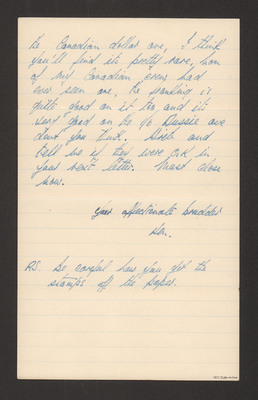 the Canadian dollar one, I think
you'll find its pretty rare, non
of my Canadian crew had
ever seen one, the franking is
quite good on it too and its
very good on the 90 Aussie one
dont you think. Write and
tell me if they were O.K in
your next letter. Must close
now.
Your affectionate brother
P.S. be careful how you get the
stamps off the paper.